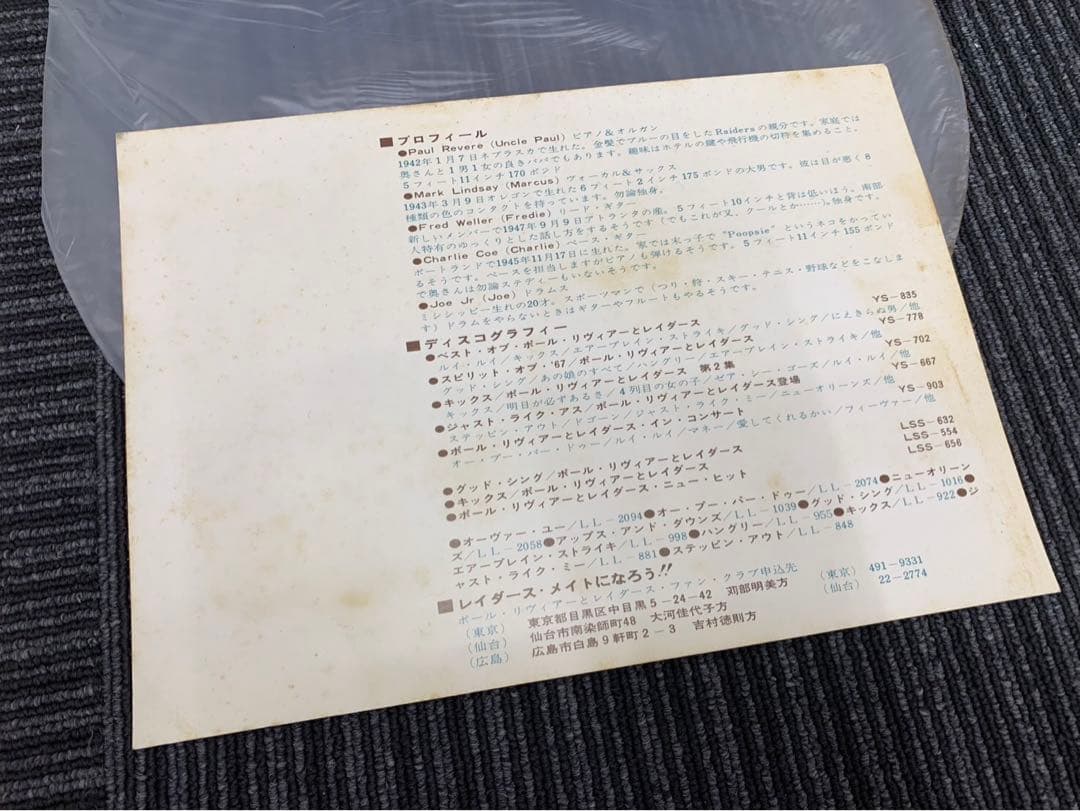 ■プロフィール
●Paul Revere (Uncle Paul) ピアノ&オルガン
1942年1月7日ネブラスカで生れた。金髪でブルーの目をしたRaidersの親分です。家庭では
奥さんと1男1女の良きパパでもあります。趣味はホテルの鍵や飛行機の切符を集めること。
5フィート11インチ170ポンド
●Mark Lindsay (Marcus) ヴォーカル&サックス
1943年3月9日オレゴンで生れた6フィート2インチ175ポンドの大男です。彼は目が悪く8
種類の色のコンタクトを持っています。勿論独身。
●Fred Weller (Fredie) リード・ギター
新しいメンバーで1947年9月9日アトランタの産。5フィート10インチと背は低いほう。南部
人特有のゆっくりとした話し方をするそうです(でもこれが又、クールとか……)。独身です。
●Charlie Coe (Charlie) ベース・ギター
ポートランドで1945年11月17日に生れた。家では末っ子で“Poopsie”というネコをかってい
るそうです。ベースを担当しますがピアノも弾けるそうです。5フィート11インチ155ポンド
で奥さんは勿論ステディーもいないそうです。
●Joe Jr (Joe) ドラムス
ミシシッピー生れの20才。スポーツマンで(つり・狩・スキー・テニス・野球などをこなしま
す)ドラムをやらないときはギターやフルートもやるそうです。
■ディスコグラフィー
●ベスト・オブ・ポール・リヴィアーとレイダース YS-835
ルイ・ルイ/キックス/エアープレイン・ストライキ/グッド・シング/にえきらぬ男/他
●スピリット・オブ・'67/ポール・リヴィアーとレイダース YS-778
グッド・シング/あの娘のすべて/ハングリー/エアープレイン・ストライキ/他
●キックス/ポール・リヴィアーとレイダース 第2集 YS-702
キックス/明日が必ずあるさ/4列目の女の子/ゼア・シー・ゴーズ/ルイ・ルイ/他
●ジャスト・ライク・アス/ポール・リヴィアーとレイダース登場 YS-667
ステッピン・アウト/ドゴーン/ジャスト・ライク・ミー/ニューオーリンズ/他
●ポール・リヴィアーとレイダース・イン・コンサート YS-903
オー・プー・パー・ドゥー/ルイ・ルイ/マネー/愛してくれるかい/フィーヴァー/他
●グッド・シング/ポール・リヴィアーとレイダース LSS-632
●キックス/ポール・リヴィアーとレイダース LSS-554
●ポール・リヴィアーとレイダース・ニュー・ヒット LSS-656
●オーヴァー・ユー/LL-2094●オー・プー・パー・ドゥー/LL-2074●ニューオリーン
ズ/LL-2058●アップス・アンド・ダウンズ/LL-1039●グッド・シング/LL-1016●
エアープレイン・ストライキ/LL-998●ハングリー/LL-955●キックス/LL-922●ジ
ャスト・ライク・ミー/LL-881●ステッピン・アウト/LL-848
■レイダース・メイトになろう!!
ポール・リヴィアーとレイダース・ファン・クラブ申込先
(東京) 東京都目黒区中目黒5-24-42 苅部明美方 (東京) 491-9331
(仙台) 仙台市南染師町48 大河佳代子方 (仙台) 22-2774
(広島) 広島市白島9軒町2-3 吉村徳則方